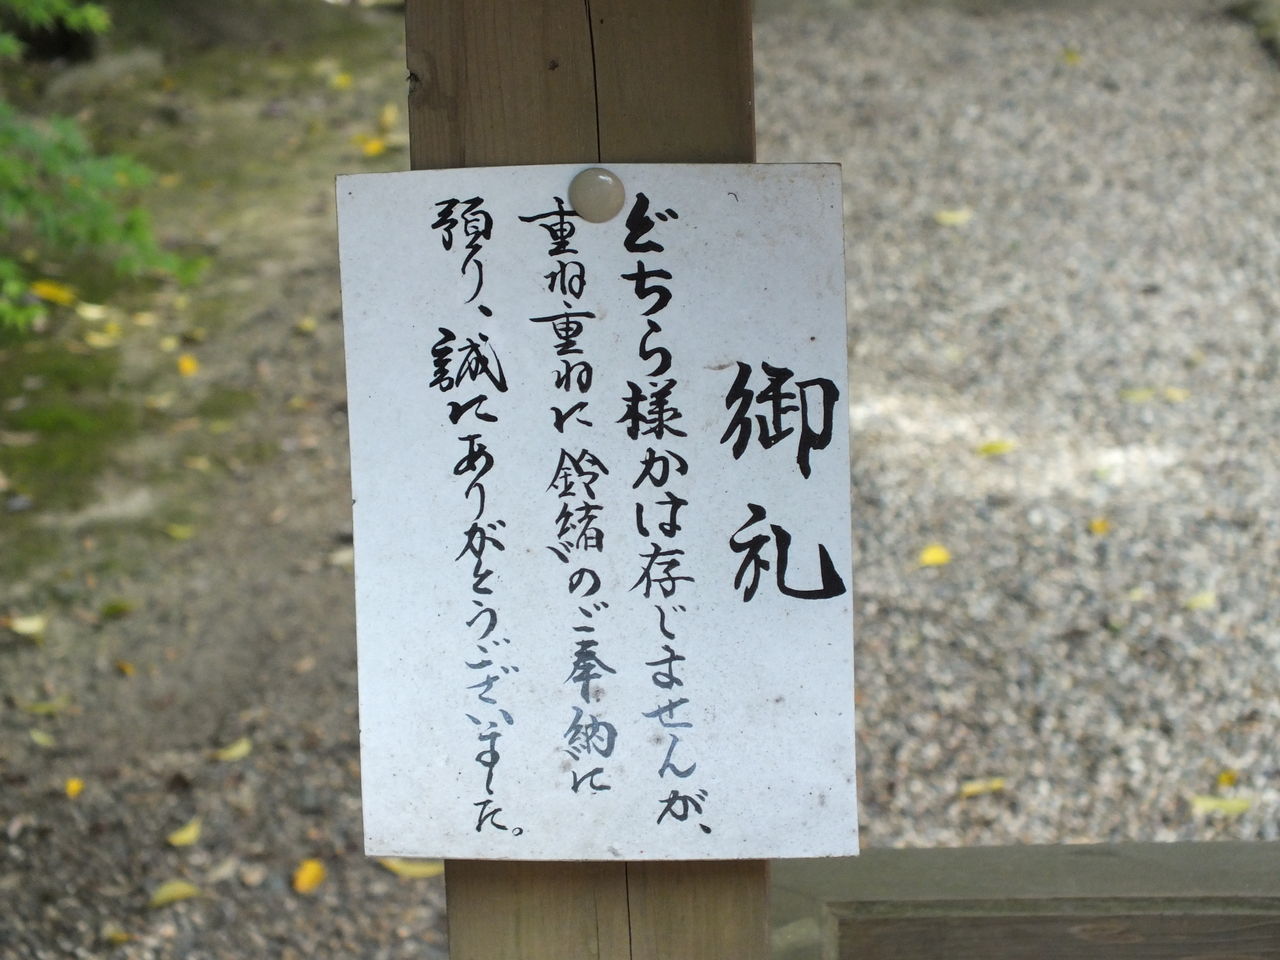 御礼
どちら様かは存じませんが、
重ね重ねに鈴緒のご奉納に
預り、誠にありがとうございました。